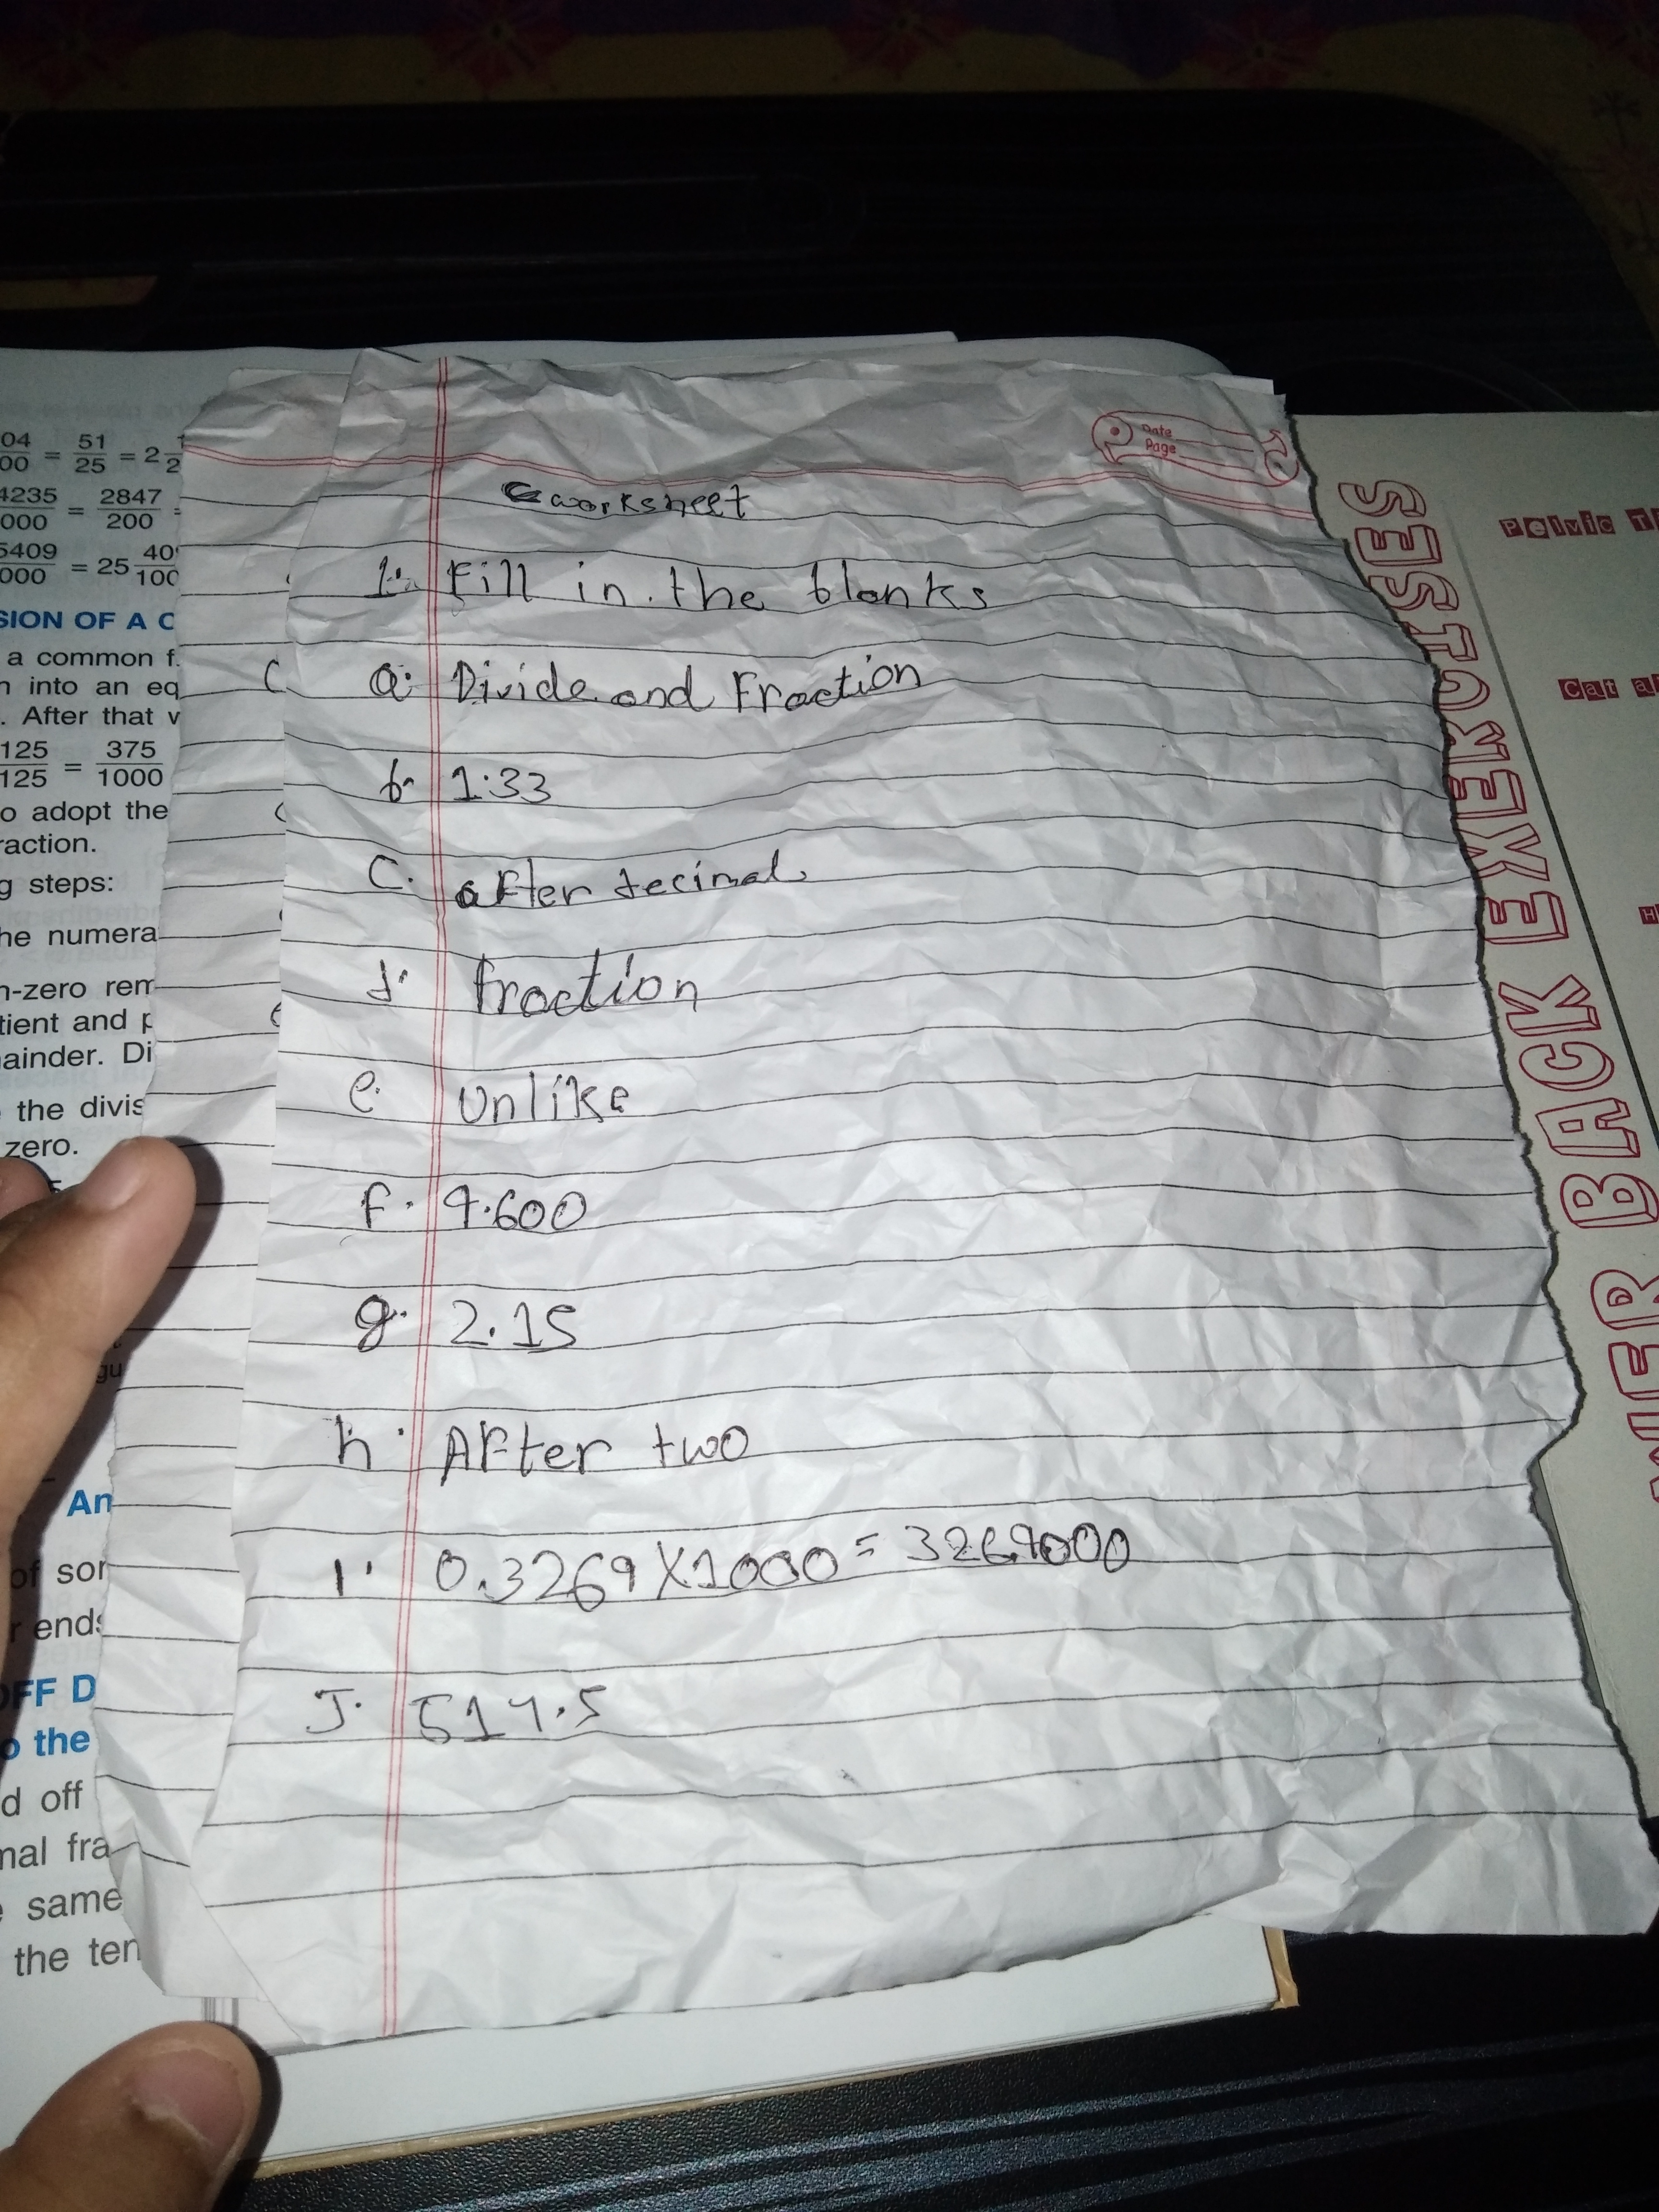 Date
Page
worksheet
1. Fill in the blanks
a. Divide and Fraction
b. 1.33
C. after decimal.
d. fraction
e. Unlike
f. 9.600
g. 2.15
h. After two
i. 0.3269 X 1000 = 3269000
J. 514.5
04/00 = 51/25 = 2
4235/000 = 2847/200 =
5409/000 = 25 40/100
SION OF A C
a common f
n into an eq
. After that v
125/125 = 375/1000
o adopt the
raction.
g steps:
he numera
n-zero rem
tient and p
ainder. Di
the divis
zero.
gu
An
of sor
r ends
OFF D
o the
d off
mal fra
same
the ten
BACK EXERCISES
Pelvic T
Cat a